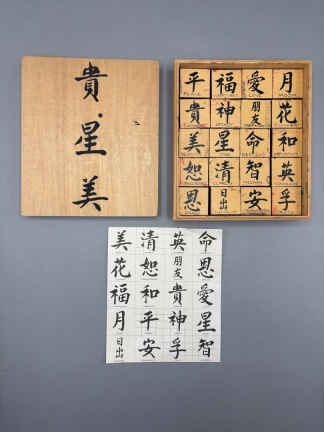 貴
星
美
平 福 愛 月
貴 神 朋友 花
美 星 命 和
恕 清 智 英
恩 日出 安 孚
美 清 英 命
花 恕 朋友 恩
福 和 貴 愛
月 平 神 星
日出 安 孚 智